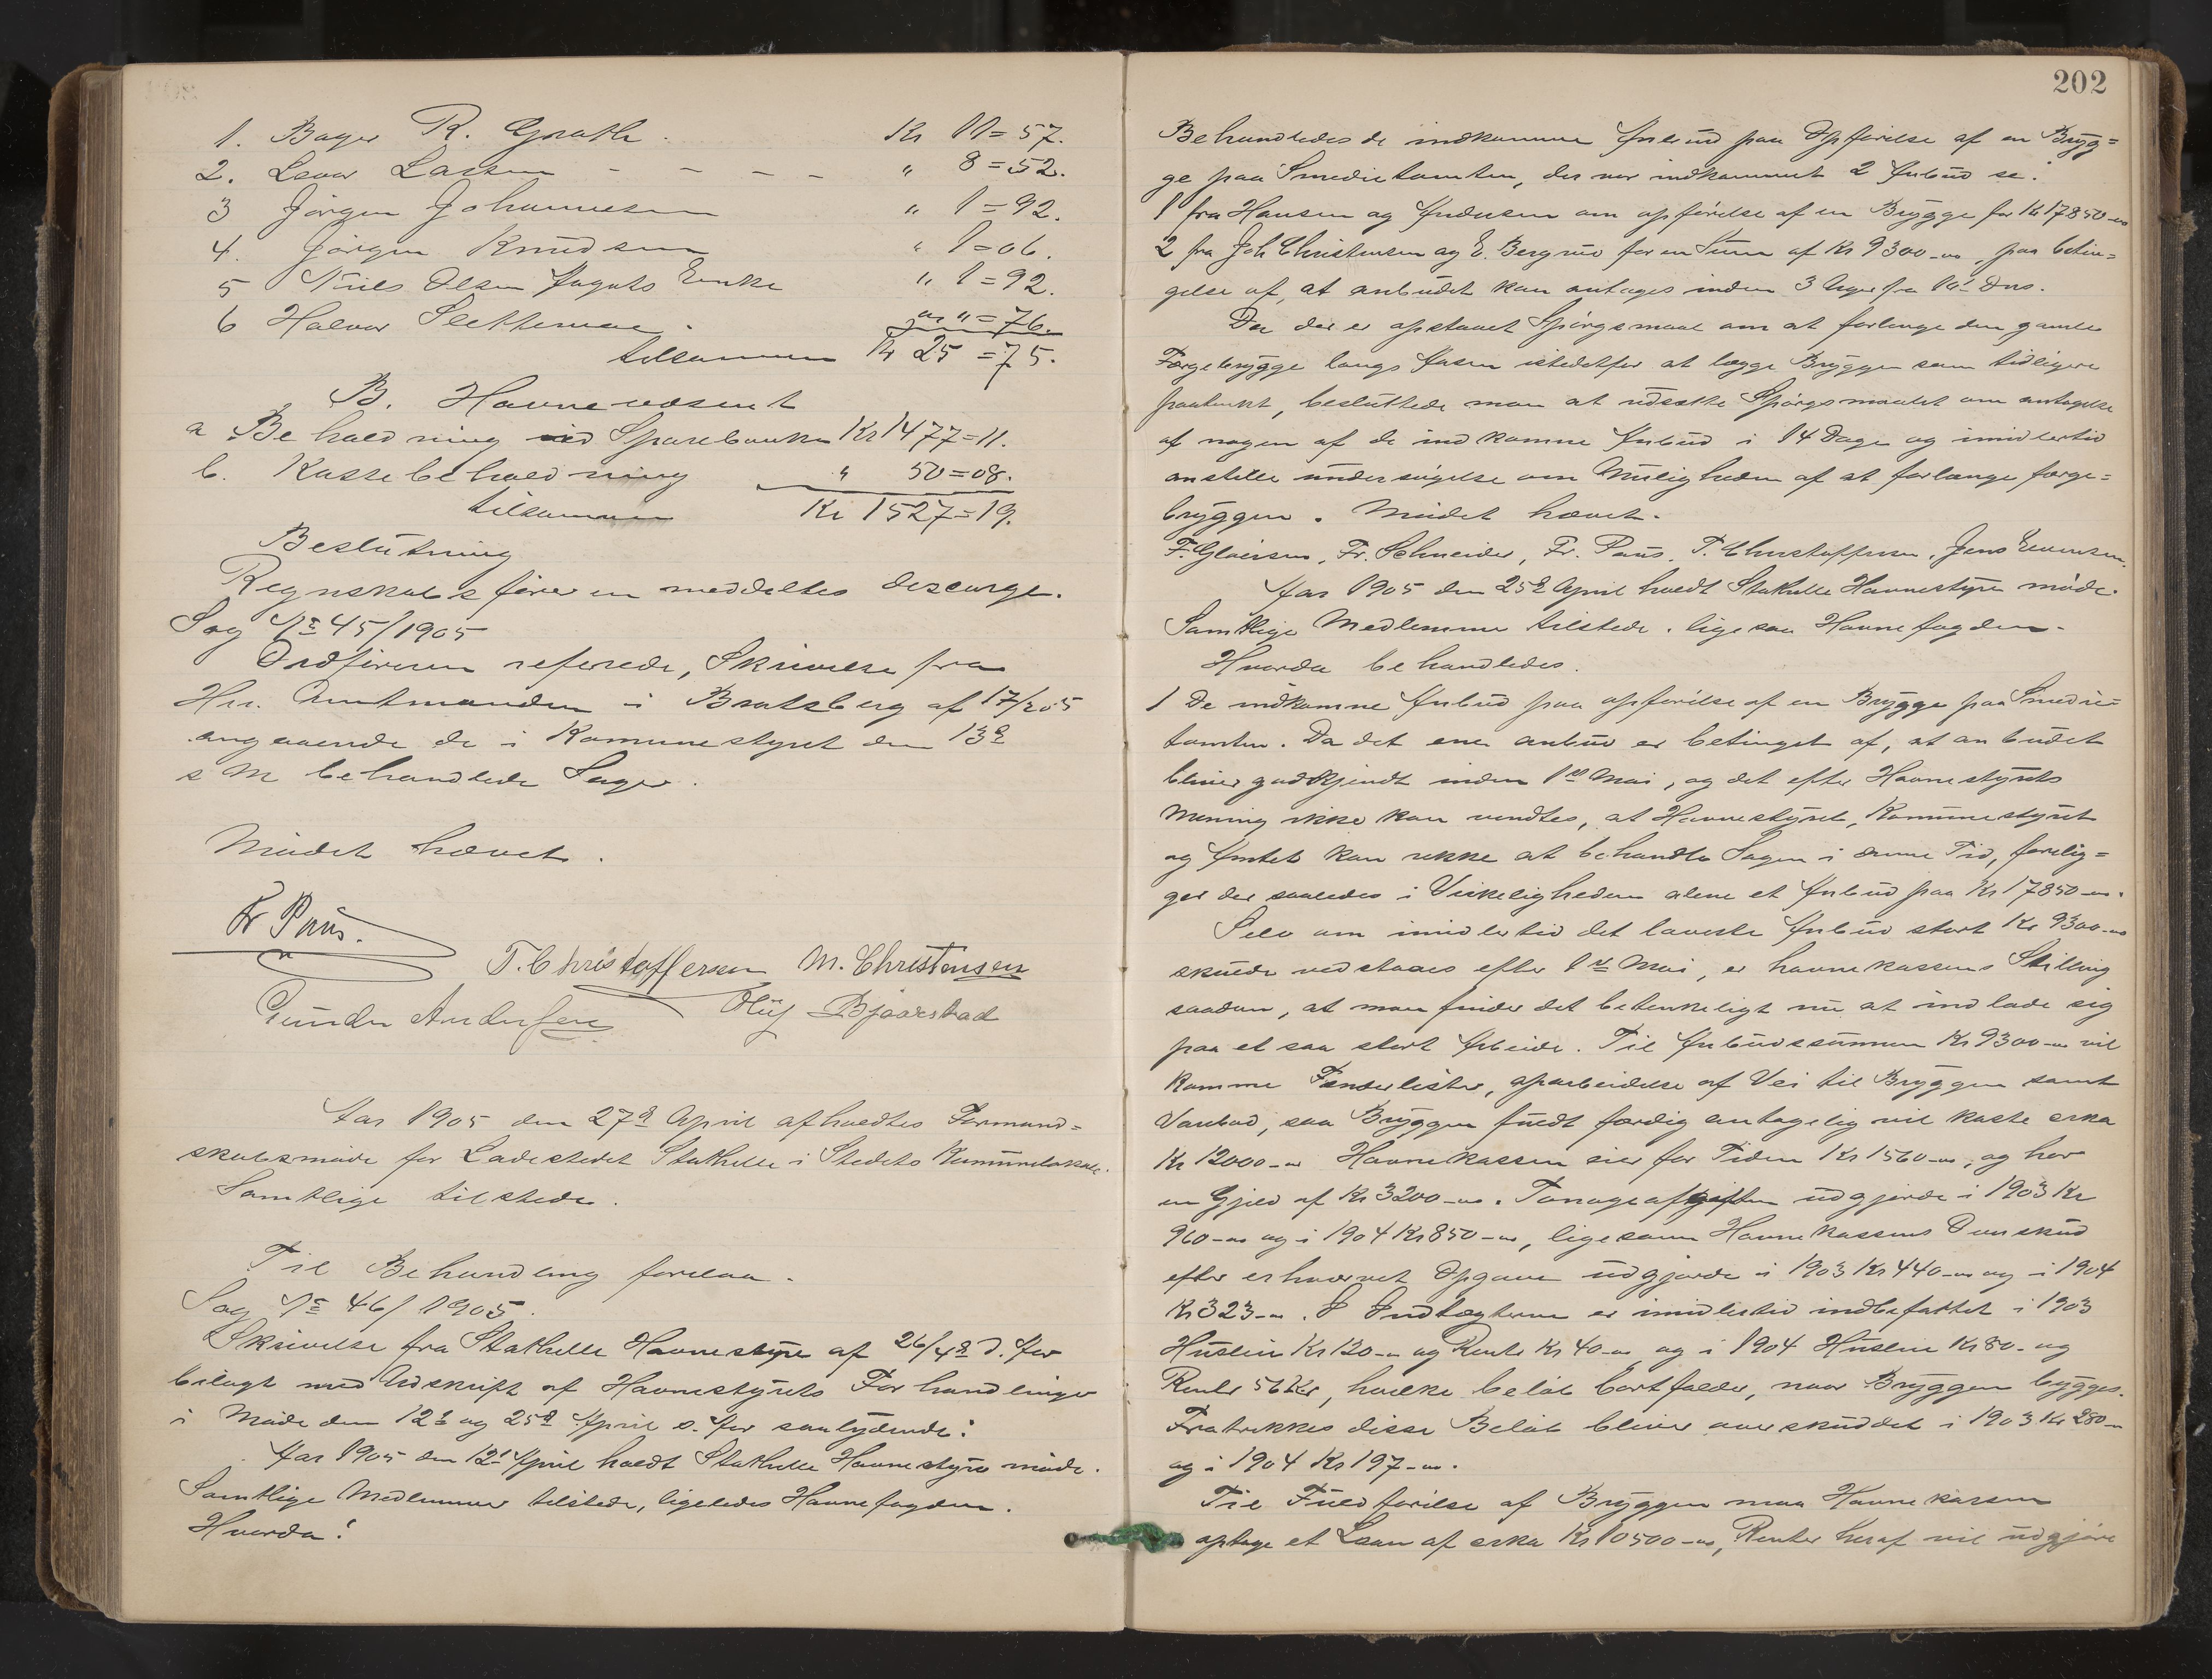 1. Bager R. Gnath Kr 11=57.
2. Lavor Larsen - - - - " 8=52.
3 Jørgen Johannesen " 1=92.
4. Jørgen Knudsen " 1=06.
5 Niels Olsen Enke " 1=92.
6 Halvor " "=76.
tilsammen Kr 25=75.
B. Havnevæsenet
a Beholdning ved Sparebanken Kr 1477=11.
b. Kassebeholdning " 50=08.
tilsammen Kr 1527=19.
Beslutning
Regnskabsføreren meddeltes decarge.
Sag No 45/1905
Ordføreren referede, Skrivelse fra
Hr. Amtmanden i Bratsberg af 17/205
angaaende de i Komunestyret den 13de
s M behandlede Sager.
Mødet hævet.
Fr Paus.
T. Christoffersen M. Christensen
Gunder Andersen Oluf Bjaarstad
Aar 1905 den 27de April afholdtes Formand=
skabsmøde for Ladestedet Stathelle i Stedets Kommunelokale.
Samtlige tilstede.
Til Behandling forelaa.
Sag No 46/1905.
Skrivelse fra Stathelle Havnestyre af 26/4de d. Aar
bilagt med Udskrift af Havnestyrets Forhandlinger
i Møde den 12te og 25de April s. Aar saalydende:
Aar 1905 den 12te April holdt Stathelle Havnestyre møde.
Samtlige Medlemmer tilstede, ligeledes Havnefogden.
Hvorda:
202
Behandledes de indkomne Anbud paa Opførelse af en Bryg=
ge paa Smedietomten, der var indkommet 2 Anbud se:
1 fra Hansen og Andersen om opførelse af en Brygge for Kr 17850-00
2 fra Joh Christensen og E. Bergrud for en Sum af Kr 9300-00, paa betin=
gelse af, at anbudet kan antages inden 3 Uger fra 10de Dns.
Da der er opstaaet Spørgsmaal om at forlænge den gamle
Færgebrygge langs Aasen istedetfor at lægge Bryggen som tidligere
paatænkt, besluttede man at udsætte Spørgsmaalet om antagelse
af nogen af de indkomne Anbud i 14 Dage og imidlertid
anstille undersøgelse om Muligheden af at forlænge færge=
bryggen. Mødet hævet.
F. Glaersen, Fr. Schneider, Fr. Paus, T. Christoffersen, Jens Evensen.
Aar 1905 den 25de April holdt Stathelle Havnestyre møde.
Samtlige Medlemmer tilstede. ligesaa Havnefogden.
Hvorda behandledes.
1 De indkomne Anbud paa opførelse af en Brygge paa Smedie=
tomten. Da det ene anbud er betinget af, at anbudet
bliver godkjendt inden 1ste Mai, og det efter Havnestyrets
Mening ikke kan ventes, at Havnestyret, Kommunestyret
og Amtet kan rekke at behandle Sagen i denne Tid, forelig=
ger der saaledes i Virkeligheden alene et Anbud paa Kr 17850-00.
Selv om imidlertid det laveste Anbud stort Kr 9300-00
skulde vedstaaes efter 1ste Mai, er havnekassens Stilling
saadan, at man finder det betenkeligt nu at indlade sig
paa et saa stort Arbeide. Til Anbudssummen Kr 9300-00 vil
komme Fenderlister, oparbeidelse af Vei til Bryggen samt
, saa Bryggen fuldt færdig antagelig vil koste cirka
Kr 12000-00 Havnekassen eier for Tiden Kr 1560-00, og har
en Gjæld af Kr 3200-00. Tonageafgiften udgjorde i 1903 Kr
960-00 og i 1904 Kr 850-00, ligesom Havnekassens Overskud
efter erhvervet Opgave udgjorde i 1903 Kr 440-00 og i 1904
Kr 323-00. I Indtægterne er imidlertid indbefattet i 1903
Husleie Kr 120-00 og Rente Kr 40-00 og i 1904 Husleie Kr 80- og
Renter 56 Kr, hvilke beløb bortfalder, naar Bryggen bygges.
Fratrekkes disse Beløb bliver overskuddet i 1903 Kr 280-00
og i 1904 Kr 197-00.
Til Fuldførelse af Bryggen maa Havnekassen
optage et Laan af cirka Kr 10500-00, Renter heraf vil udgjøre